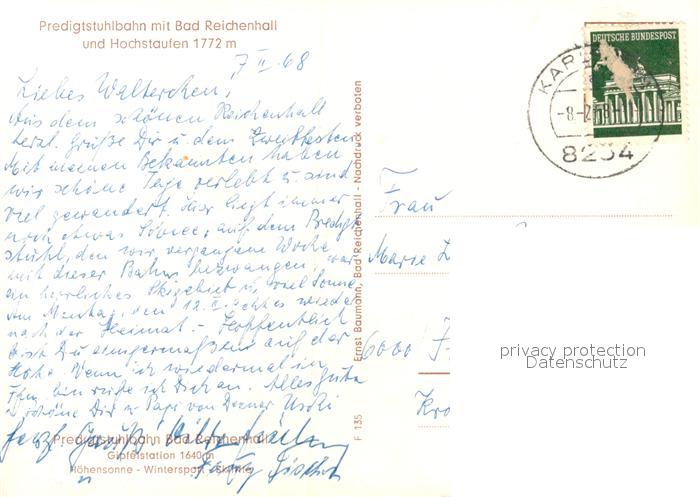 Predigtstuhlbahn mit Bad Reichenhall
und Hochstaufen 1772 m
7 II 68
Liebes Walterchen,
Aus dem schönen Reichenhall
herzl. Grüße Dir u. dem
Mit meinen Bekannten haben
wir schöne Tage verlebt u. sind
viel gewandert. Hier liegt immer
noch etwas Schnee, auf dem Predigt-
stuhl, den wir vergangene Woche
mit dieser Bahn bezwangen, war
ein herrliches Skigebiet u. viel Sonne
Am Montag, den 12. II. geht es wieder
nach der Heimat. - Hoffentlich
bist Du einigermaßen auf der
Höhe. Wenn ich wiedermal in
Ffm. bin rufe ich Dich an. Alles Gute
wünsche Dir u. Papi von Deiner Uschi
herzl. Grüße
Predigtstuhlbahn Bad Reichenhall
Gipfelstation 1640 m
Höhensonne - Wintersport - Skilifte
F 135
Ernst Baumann, Bad Reichenhall - Nachdruck verboten
DEUTSCHE BUNDESPOST
8234
Frau
Marie L
6000 F
Kro
privacy protection
Datenschutz